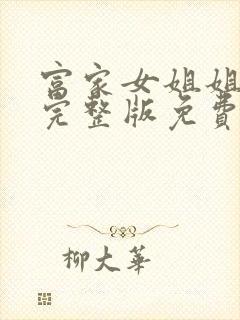 富家女姐姐
完整版免費
柳大華